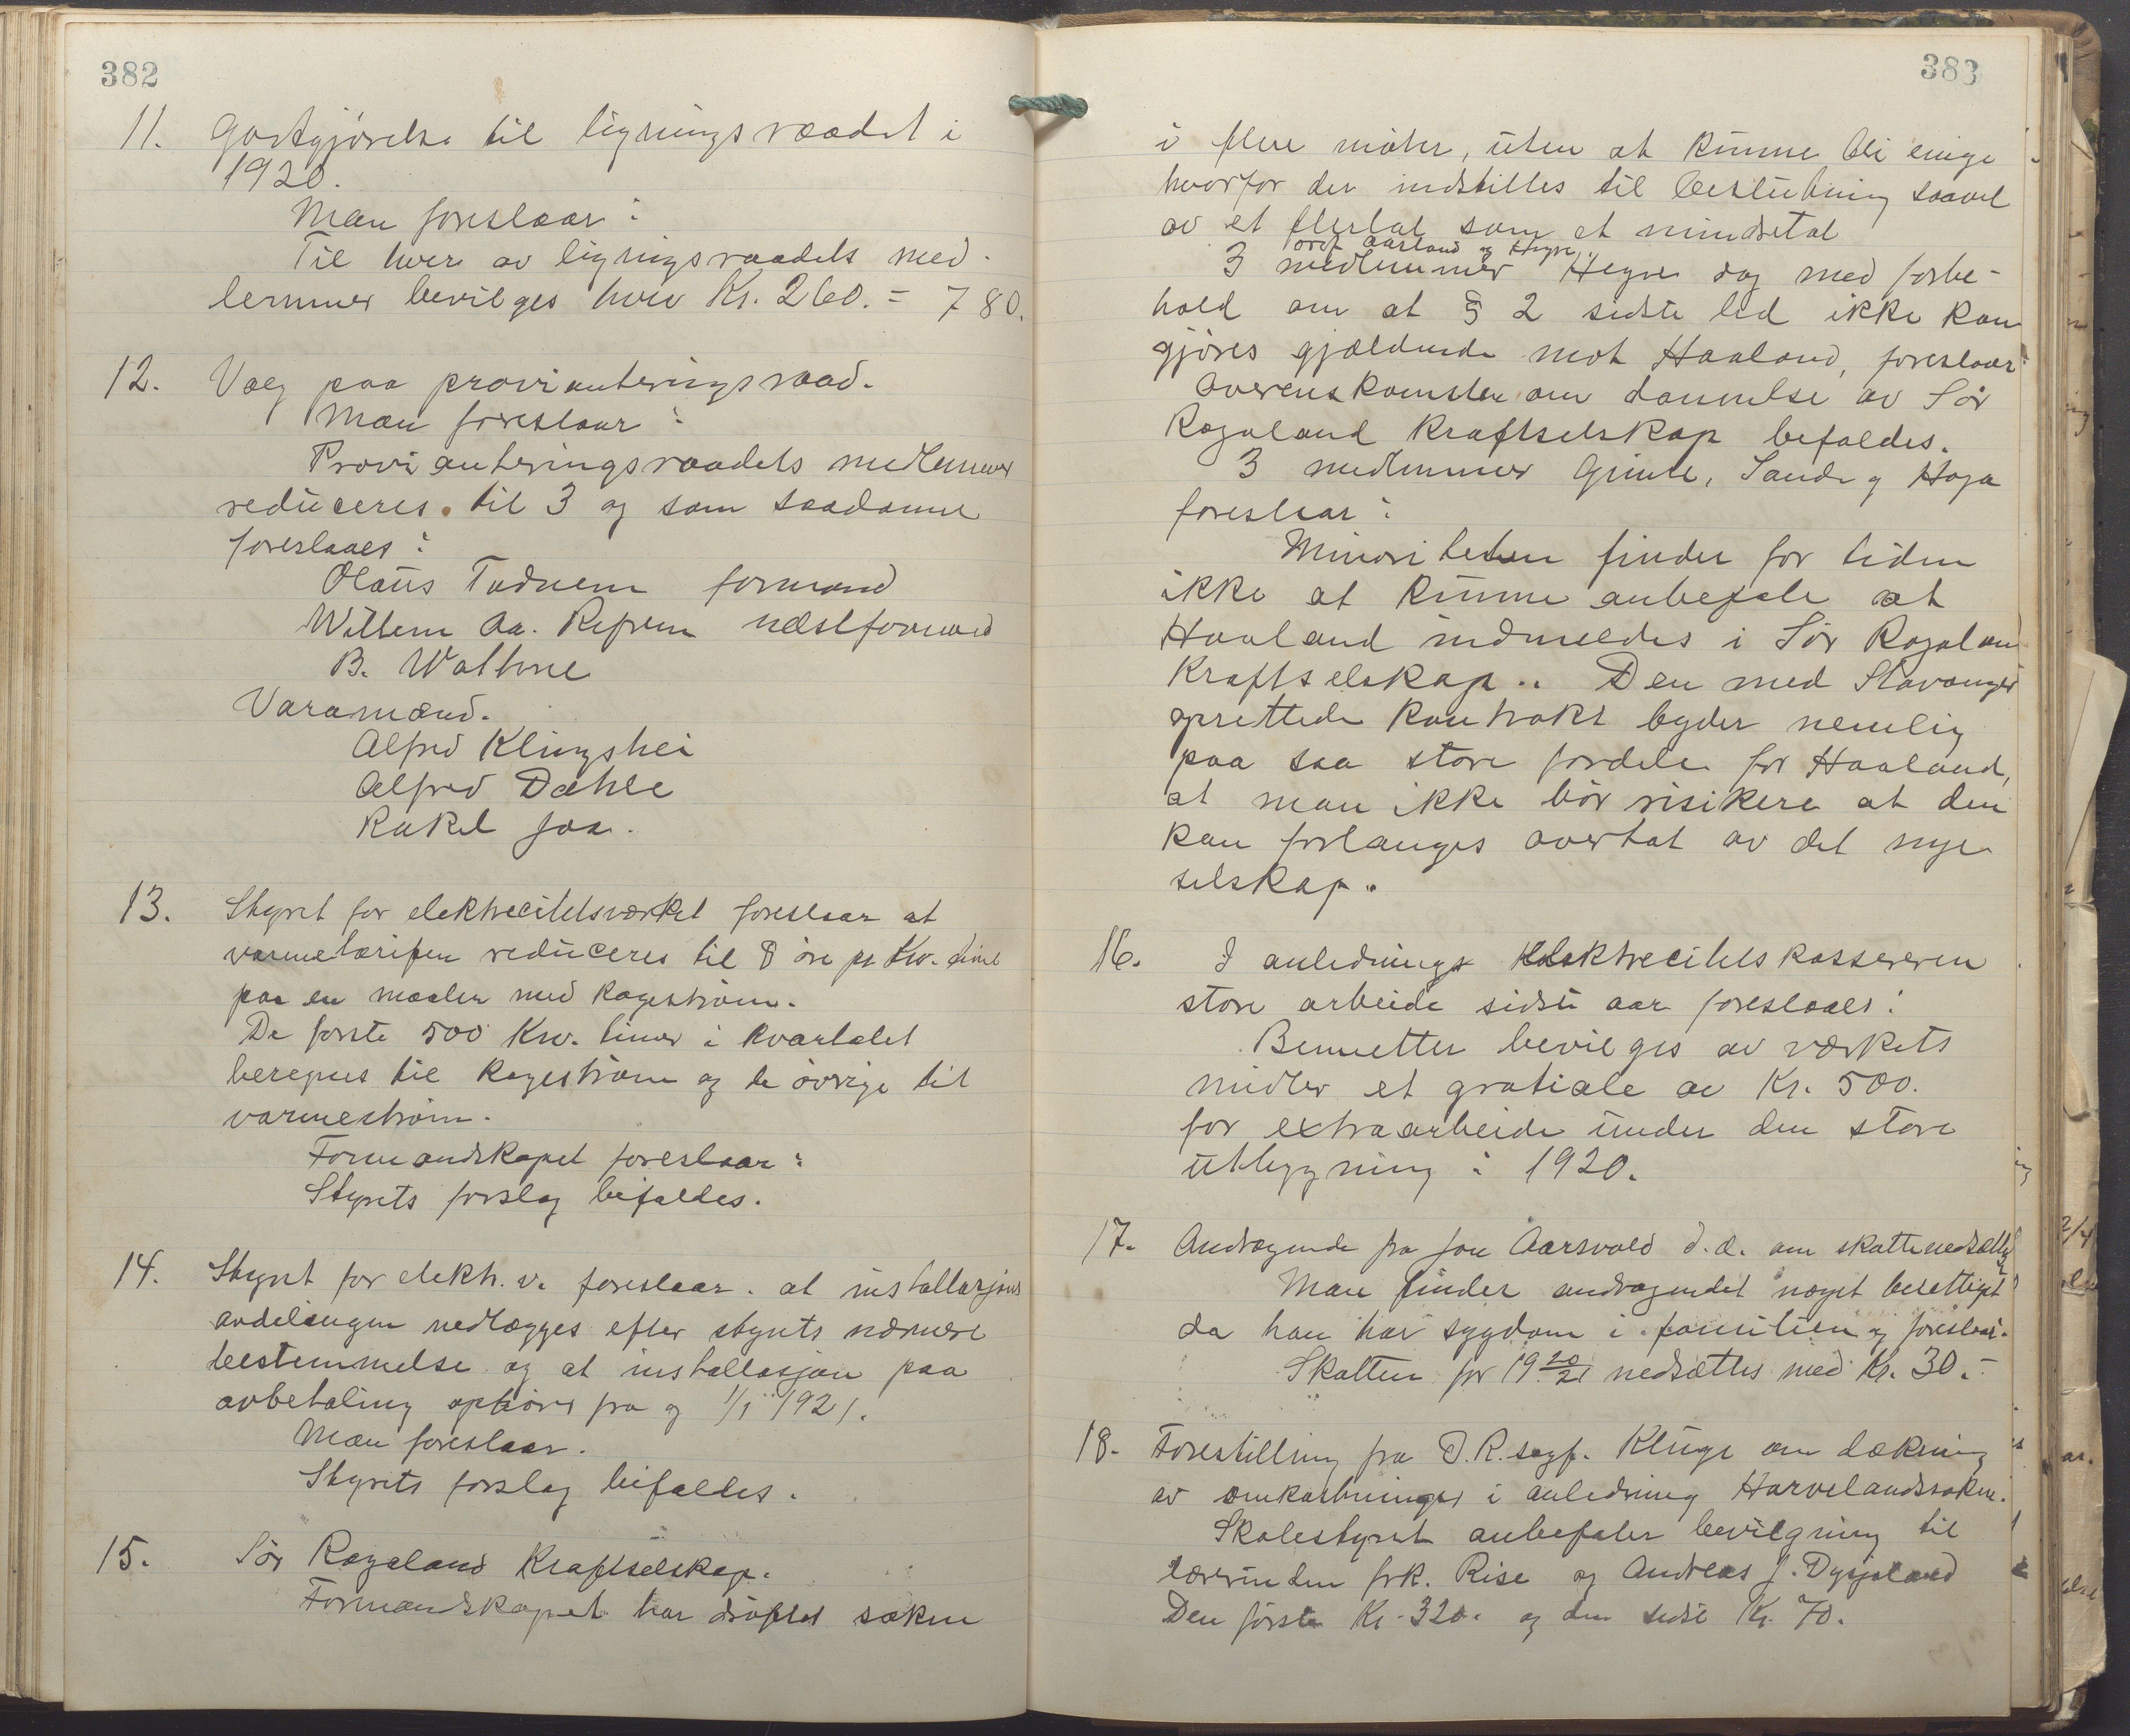 382
11. Godtgjörelse til ligningsraadet i
1920.
Man foreslaar:
Til hver av ligningsraadets med-
lemmer bevilges hver Kr. 260. = 780.
12. Valg paa provianteringsraad.
Man foreslaar:
Provianteringsraadets medlemmer
reduceres til 3 og som saadanne
foreslaaes:
Olaus Tadnem formand
Willem Aa. Refsnes næstformand
B. Wathne
Varamænd.
Alfred Klingshei
Alfred Dahle
Rakel Joa.
13. Styret for elektrecitetsværket foreslaar at
varmetarifen reduceres til 8 öre pr Kw. time
paa en maaler med kogeström.
De forste 500 Kw. timer i kvartalet
beregnes til kogeström og de övrige til
varmeström.
Formandskapet foreslaar:
Styrets forslag bifaldes.
14. Styret for elektr. v. foreslaar at installasjons
avdelingen nedlægges efter styrets nærmere
bestemmelse og at installasjon paa
avbetaling ophörer fra og 1/1 1921.
Man foreslaar.
Styrets forslag bifaldes.
15. Sör Rogaland Kraftselskap.
Formandskapet har dröftet saken
383
i flere möter, uten at kunne bli enige
hvorfor der indstilles til beslutning saavel
av et flertal som et mindretal
ordf. Aarland og Hegre
3 medlemmer Hegre dog med forbe-
hold om at § 2 sidste led ikke kan
gjöres gjældende mot Haaland, foreslaar:
Overenskomsten om dannelse av Sör
Rogaland Kraftselskap befaldes.
3 medlemmer Grude, Sande og Haga
foreslaar:
Minoriteten finder for tiden
ikke at kunne anbefale at
Haaland indmeldes i Sör Rogaland
Kraftselskap. Den med Stavanger
oprettede kontrakt byder nemlig
paa saa store fordele for Haaland,
at man ikke bör risikere at den
kan forlanges overtat av det nye
selskap.
16. I anledning elektrecitetskassereren
store arbeide sidste aar foreslaaes:
Bennetter bevilges av værkets
midler et gratiale av Kr. 500.
for extraarbeide under den store
utbygning i 1920.
17. Andragende fra Jon Aarsvold d.æ. om skattenedsættelse
Man finder andragendet noget berettiget
da han har sygdom i familien og foreslaar.
Skatten for 19 20/21 nedsættes med Kr. 30.-
18. Forestilling fra O.R.sagf. Kluge om dækning
av omkostninger i anledning Harvelandssaken.
Skolestyret anbefaler bevilgning til
lærerinden frk. Rise og Andreas J. Dysjeland
Den förste Kr. 320. og den sidste Kr. 70.